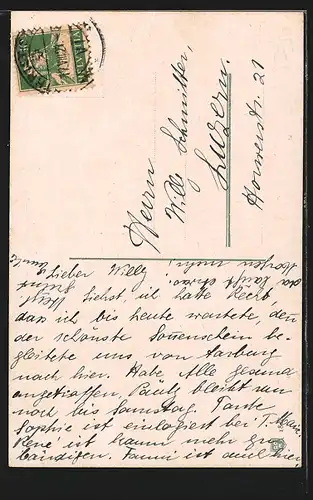 Herrn
Willy Schnitter,
Luzern.
Horwerstr. 21
Lieber Willy!
siehst, ich hatte Recht,
dass ich bis heute wartete, denn
der schönste Sonnenschein be-
gleitete uns von Aarburg
nach hier. Habe Alle gesund
angetroffen. Pauly bleibt nun
noch bis Samstag. Tante
Sophie ist einlogiert bei T. Marie.
René ist kaum mehr zu
bändigen. Fanni ist auch hier,